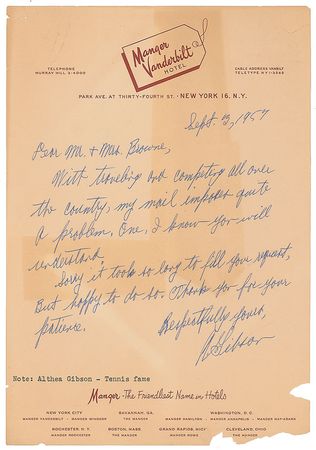 Manger
Vanderbilt
HOTEL
TELEPHONE
MURRAY HILL 3-4000
CABLE ADDRESS VANBILT
TELETYPE NY1-3545
PARK AVE. AT THIRTY-FOURTH ST. · NEW YORK 16, N.Y.
Sept 3, 1957
Dear Mr. + Mrs. Browne,
With traveling and competing all over
the country, my mail imposes quite
a problem. One, I know you will
understand.
Sorry it took so long to fill your request,
But happy to do so. Thank you for your
patience.
Respectfully yours,
A Gibson
Note: Althea Gibson - Tennis fame
Manger · The Friendliest Name in Hotels
NEW YORK CITY
MANGER VANDERBILT · MANGER WINDSOR
SAVANNAH, GA.
THE MANGER
WASHINGTON, D.C.
MANGER HAMILTON · MANGER ANNAPOLIS · MANGER HAY-ADAMS
ROCHESTER, N.Y.
MANGER ROCHESTER
BOSTON, MASS.
THE MANGER
GRAND RAPIDS, MICH.
MANGER ROWE
CLEVELAND, OHIO
THE MANGER